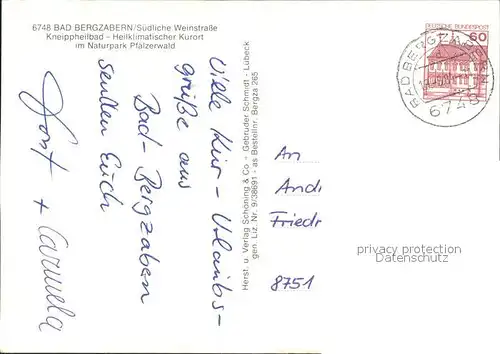 6748 BAD BERGZABERN/Südliche Weinstraße
Kneippheilbad - Heilklimatischer Kurort
im Naturpark Pfälzerwald
Viele Kur - Urlaubs-
grüße aus
Bad- Bergzaben
senden Euch
Jost + Carmela
Herst. u. Verlag Schöning & Co - Gebrüder Schmidt - Lübeck
gen. Liz. Nr. 9/38691 - as Bestellnr. Bergza 265
DEUTSCHE BUNDESPOST
60
BAD BERGZABERN
6748
An
Andr
Friedr
8751
privacy protection
Oldthing.de